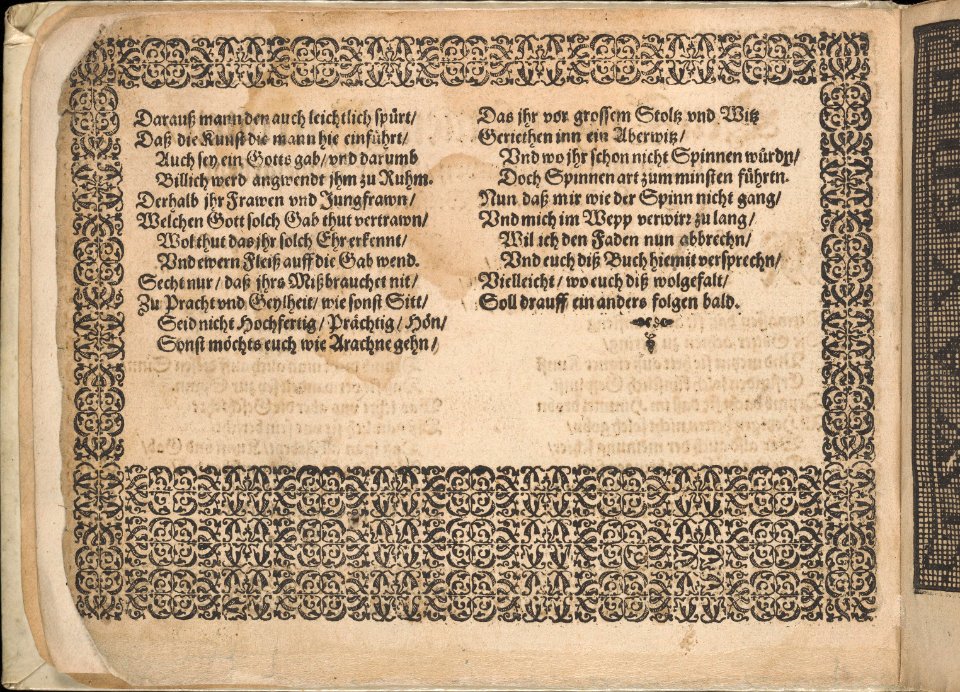 Darauß mann den auch leichtlich spürt/
Daß die Kunst die mann hie einführt/
Auch sey ein Gotts gab/ vnd darumb
Billich werd angwendt jhm zu Ruhm.
Derhalb jhr Frawen vnd Jungfrawn/
Welchen Gott solch Gab thut vertrawn/
Wol thut das jhr solch Ehr erkennt/
Vnd ewern Fleiß auff die Gab wend.
Secht nur/ daß jhrs Mißbrauchet nit/
Zu Pracht vnd Geylheit/ wie sonst Sitt/
Seid nicht Hochfertig/ Prächtig/ Hön/
Sonst möchts euch wie Arachne gehn/
Das jhr vor grossem Stoltz vnd Witz
Geriethen inn ein Aberwitz/
Vnd wo jhr schon nicht Spinnen würdn/
Doch Spinnen art zum minsten führtn.
Nun daß mir wie der Spinn nicht gang/
Vnd mich im Wepp verwirr zu lang/
Wil ich den Faden nun abbrechn/
Vnd euch diß Buch hiemit versprechn/
Vielleicht/ wo euch diß wolgefalt/
Soll drauff ein anders folgen bald.